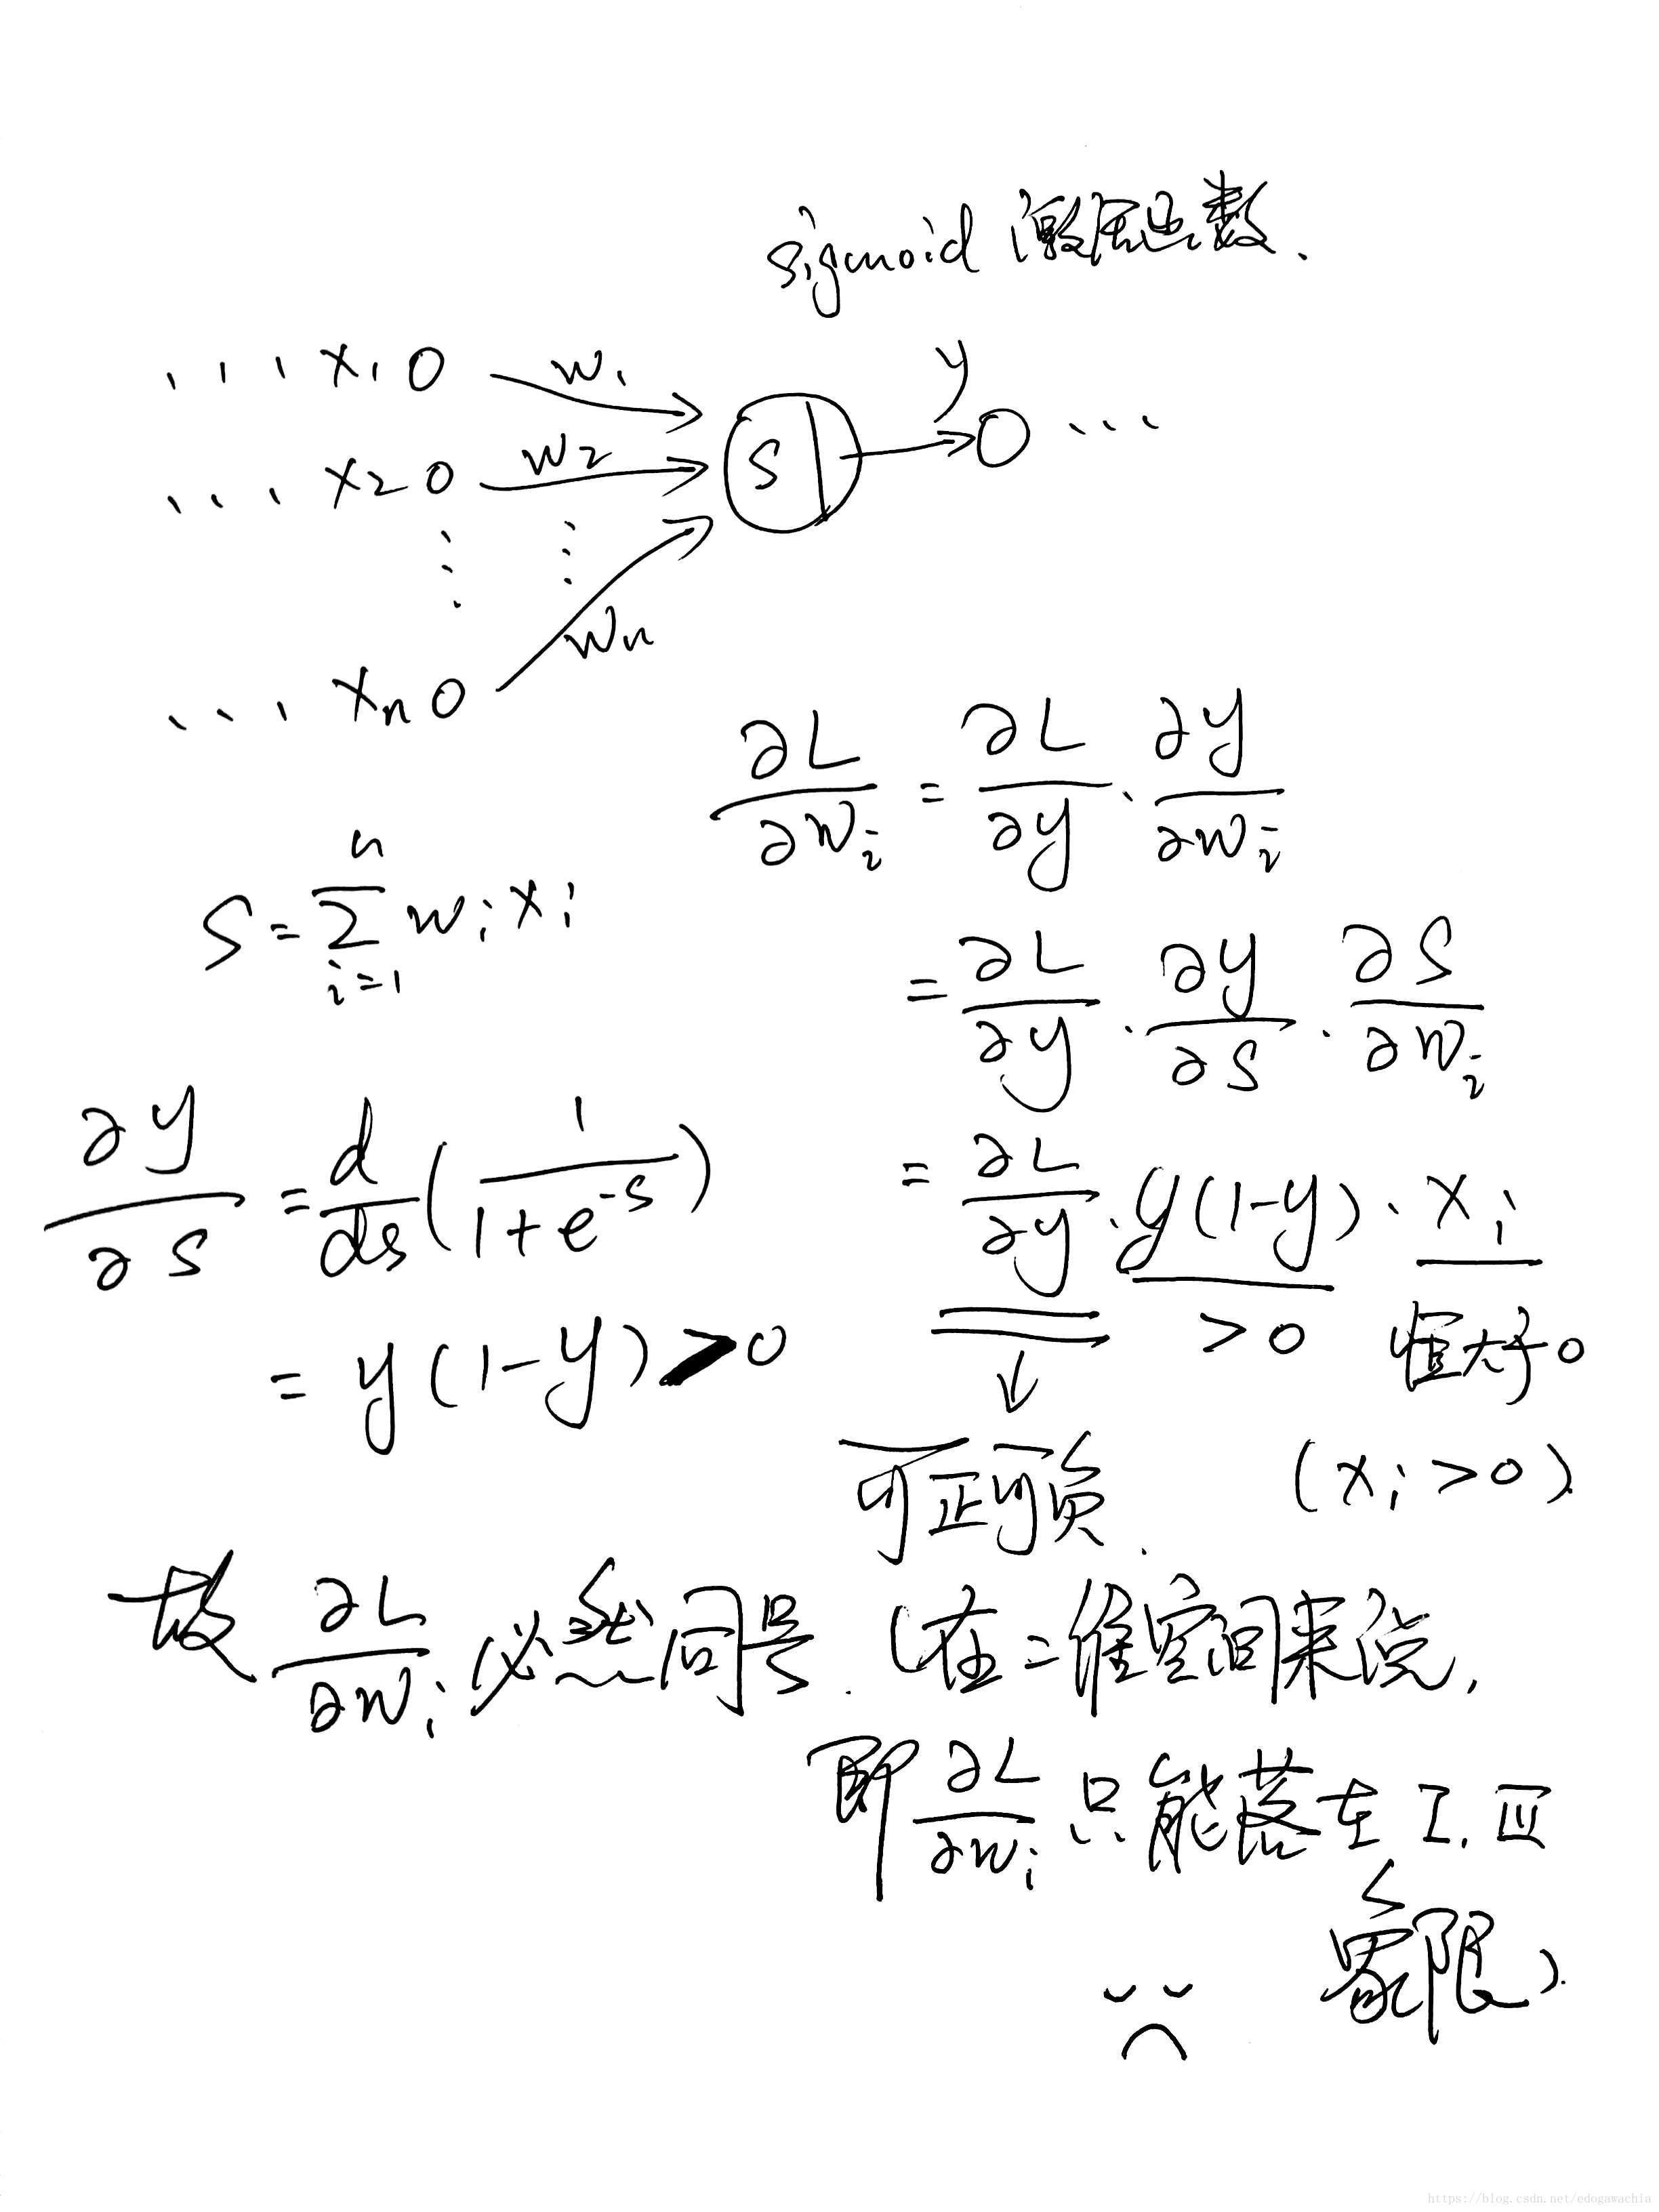 sigmoid 激活函数.
... x₁ O w₁
y
... x₂ O w₂ S O ...
⋮ ⋮
... xₙ O wₙ
∂L/∂wᵢ = ∂L/∂y · ∂y/∂wᵢ
S = ∑ᵢ₌₁ⁿ wᵢxᵢ
= ∂L/∂y · ∂y/∂S · ∂S/∂wᵢ
∂y/∂S = d/ds(1/(1+e⁻ˢ))
= y(1-y) > 0
= ∂L/∂y · y(1-y) · xᵢ
>0 恒大于0
可正可负. (xᵢ>0).
故 ∂L/∂wᵢ 必然同号. (在二维空间来说,
即 ∂L/∂wᵢ 只能落在 I, III
象限).
https://blog.csdn.net/edogawachia